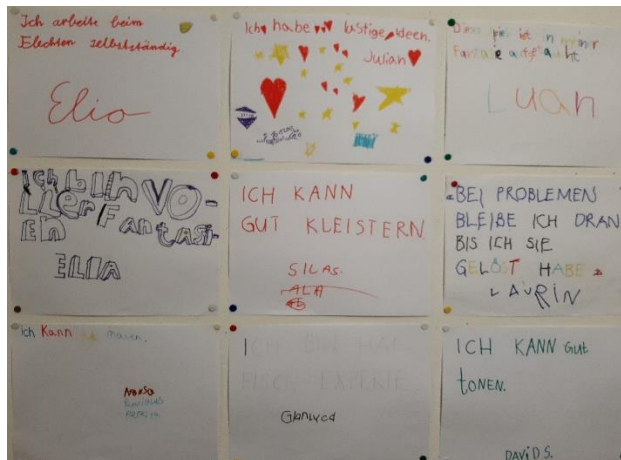 Ich arbeite beim
Elechten selbstständig.
Elio
Ich habe lustige Ideen.
Julian
ist in meiner
Fantasie
Luan
Ich bin vo-
ller Fantasi-
en
ELIA
ICH KANN
GUT KLEISTERN
SILAS.
BEI PROBLEMEN
BLEIBE ICH DRAN
BIS ICH SIE
GELÖST HABE
LAURIN
Ich Kann malen.
ICH BIN
FISCH EXPERTE
ICH KANN GUT
tONEN.
DAViD S.